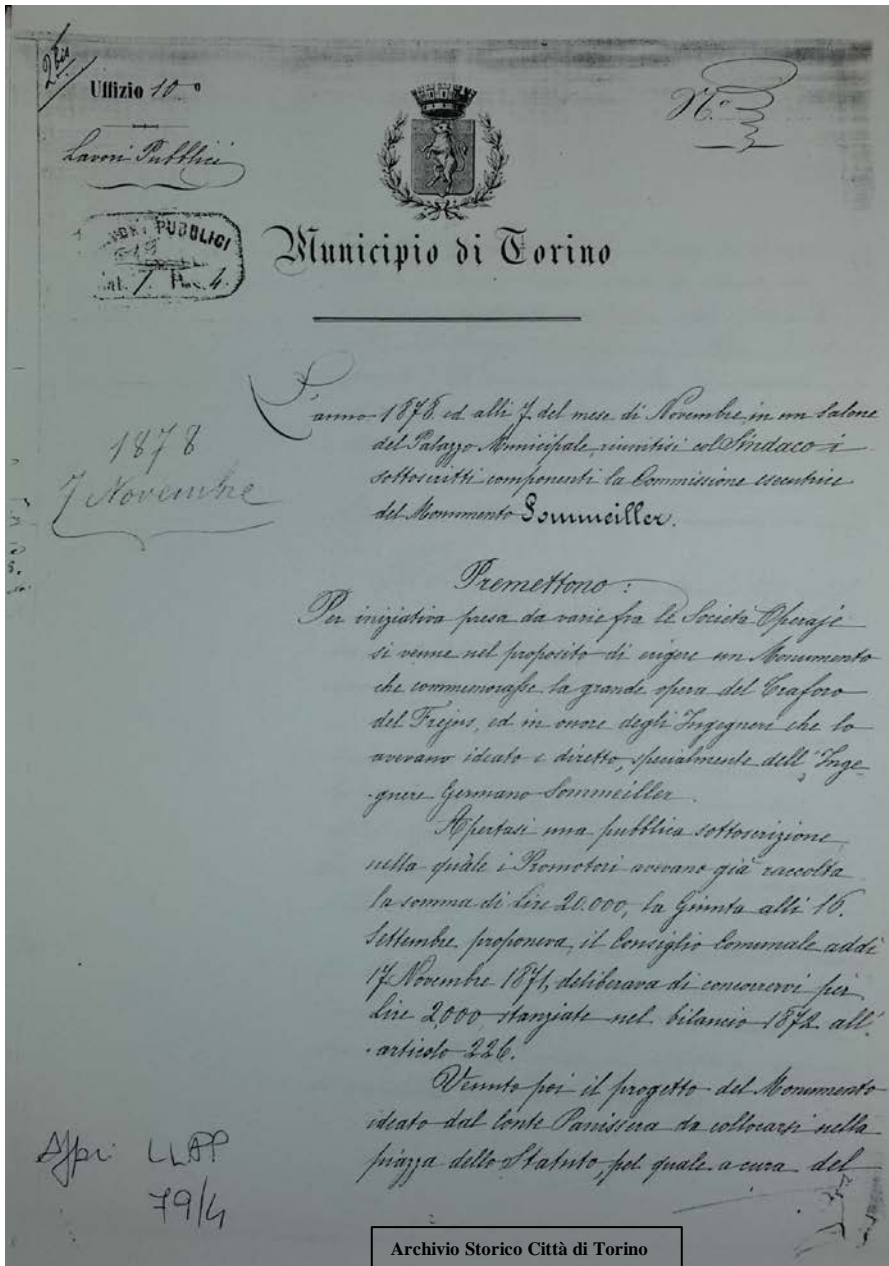 2 bis
Uffizio 10º
Lavori Pubblici
N.º
LAVORI PUBBLICI
Cat. 7. Pos. 4.
Municipio di Torino
1878
7 Novembre
L'anno 1878 ed alli 7 del mese di Novembre, in un Salone
del Palazzo Municipale, riunitisi col Sindaco i
sottoscritti componenti la Commissione esecutrice
del Monumento Sommeiller.
Premettono:
Per iniziativa presa da varie fra le Società Operaje
si venne nel proposito di erigere un Monumento
che commemorasse la grande opera del Traforo
del Frejus, ed in onore degli Ingegneri che lo
avevano ideato e diretto, specialmente dell'Inge
gnere Germano Sommeiller.
Apertasi una pubblica sottoscrizione
nella quale i Promotori avevano già raccolta
la somma di Lire 20.000, la Giunta alli 16.
Settembre proponeva, il Consiglio Comunale addì
17 Novembre 1871, deliberava di concorrervi per
Lire 2,000 stanziate nel bilancio 1872 all'
articolo 226.
Venuto poi il progetto del Monumento
ideato dal Conte Panissera da collocarsi nella
piazza dello Statuto, pel quale a cura del
LLPP
79/4
Archivio Storico Città di Torino